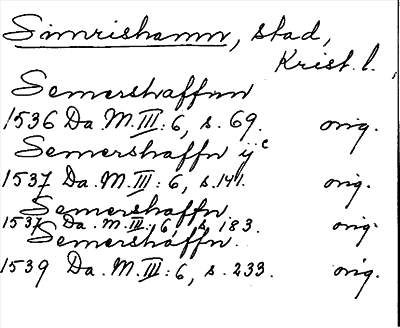 Simrishamn, stad,
Krist. l.
Semershaffnn
1536 Da. M. III: 6, s. 69. orig.
Semershaffn ijc
1537 Da. M. III: 6, s. 141. orig.
Semershaffn
1537 Da. M. III: 6, s. 183. orig.
Semershaffn.
1539 Da. M. III: 6, s. 233. orig.